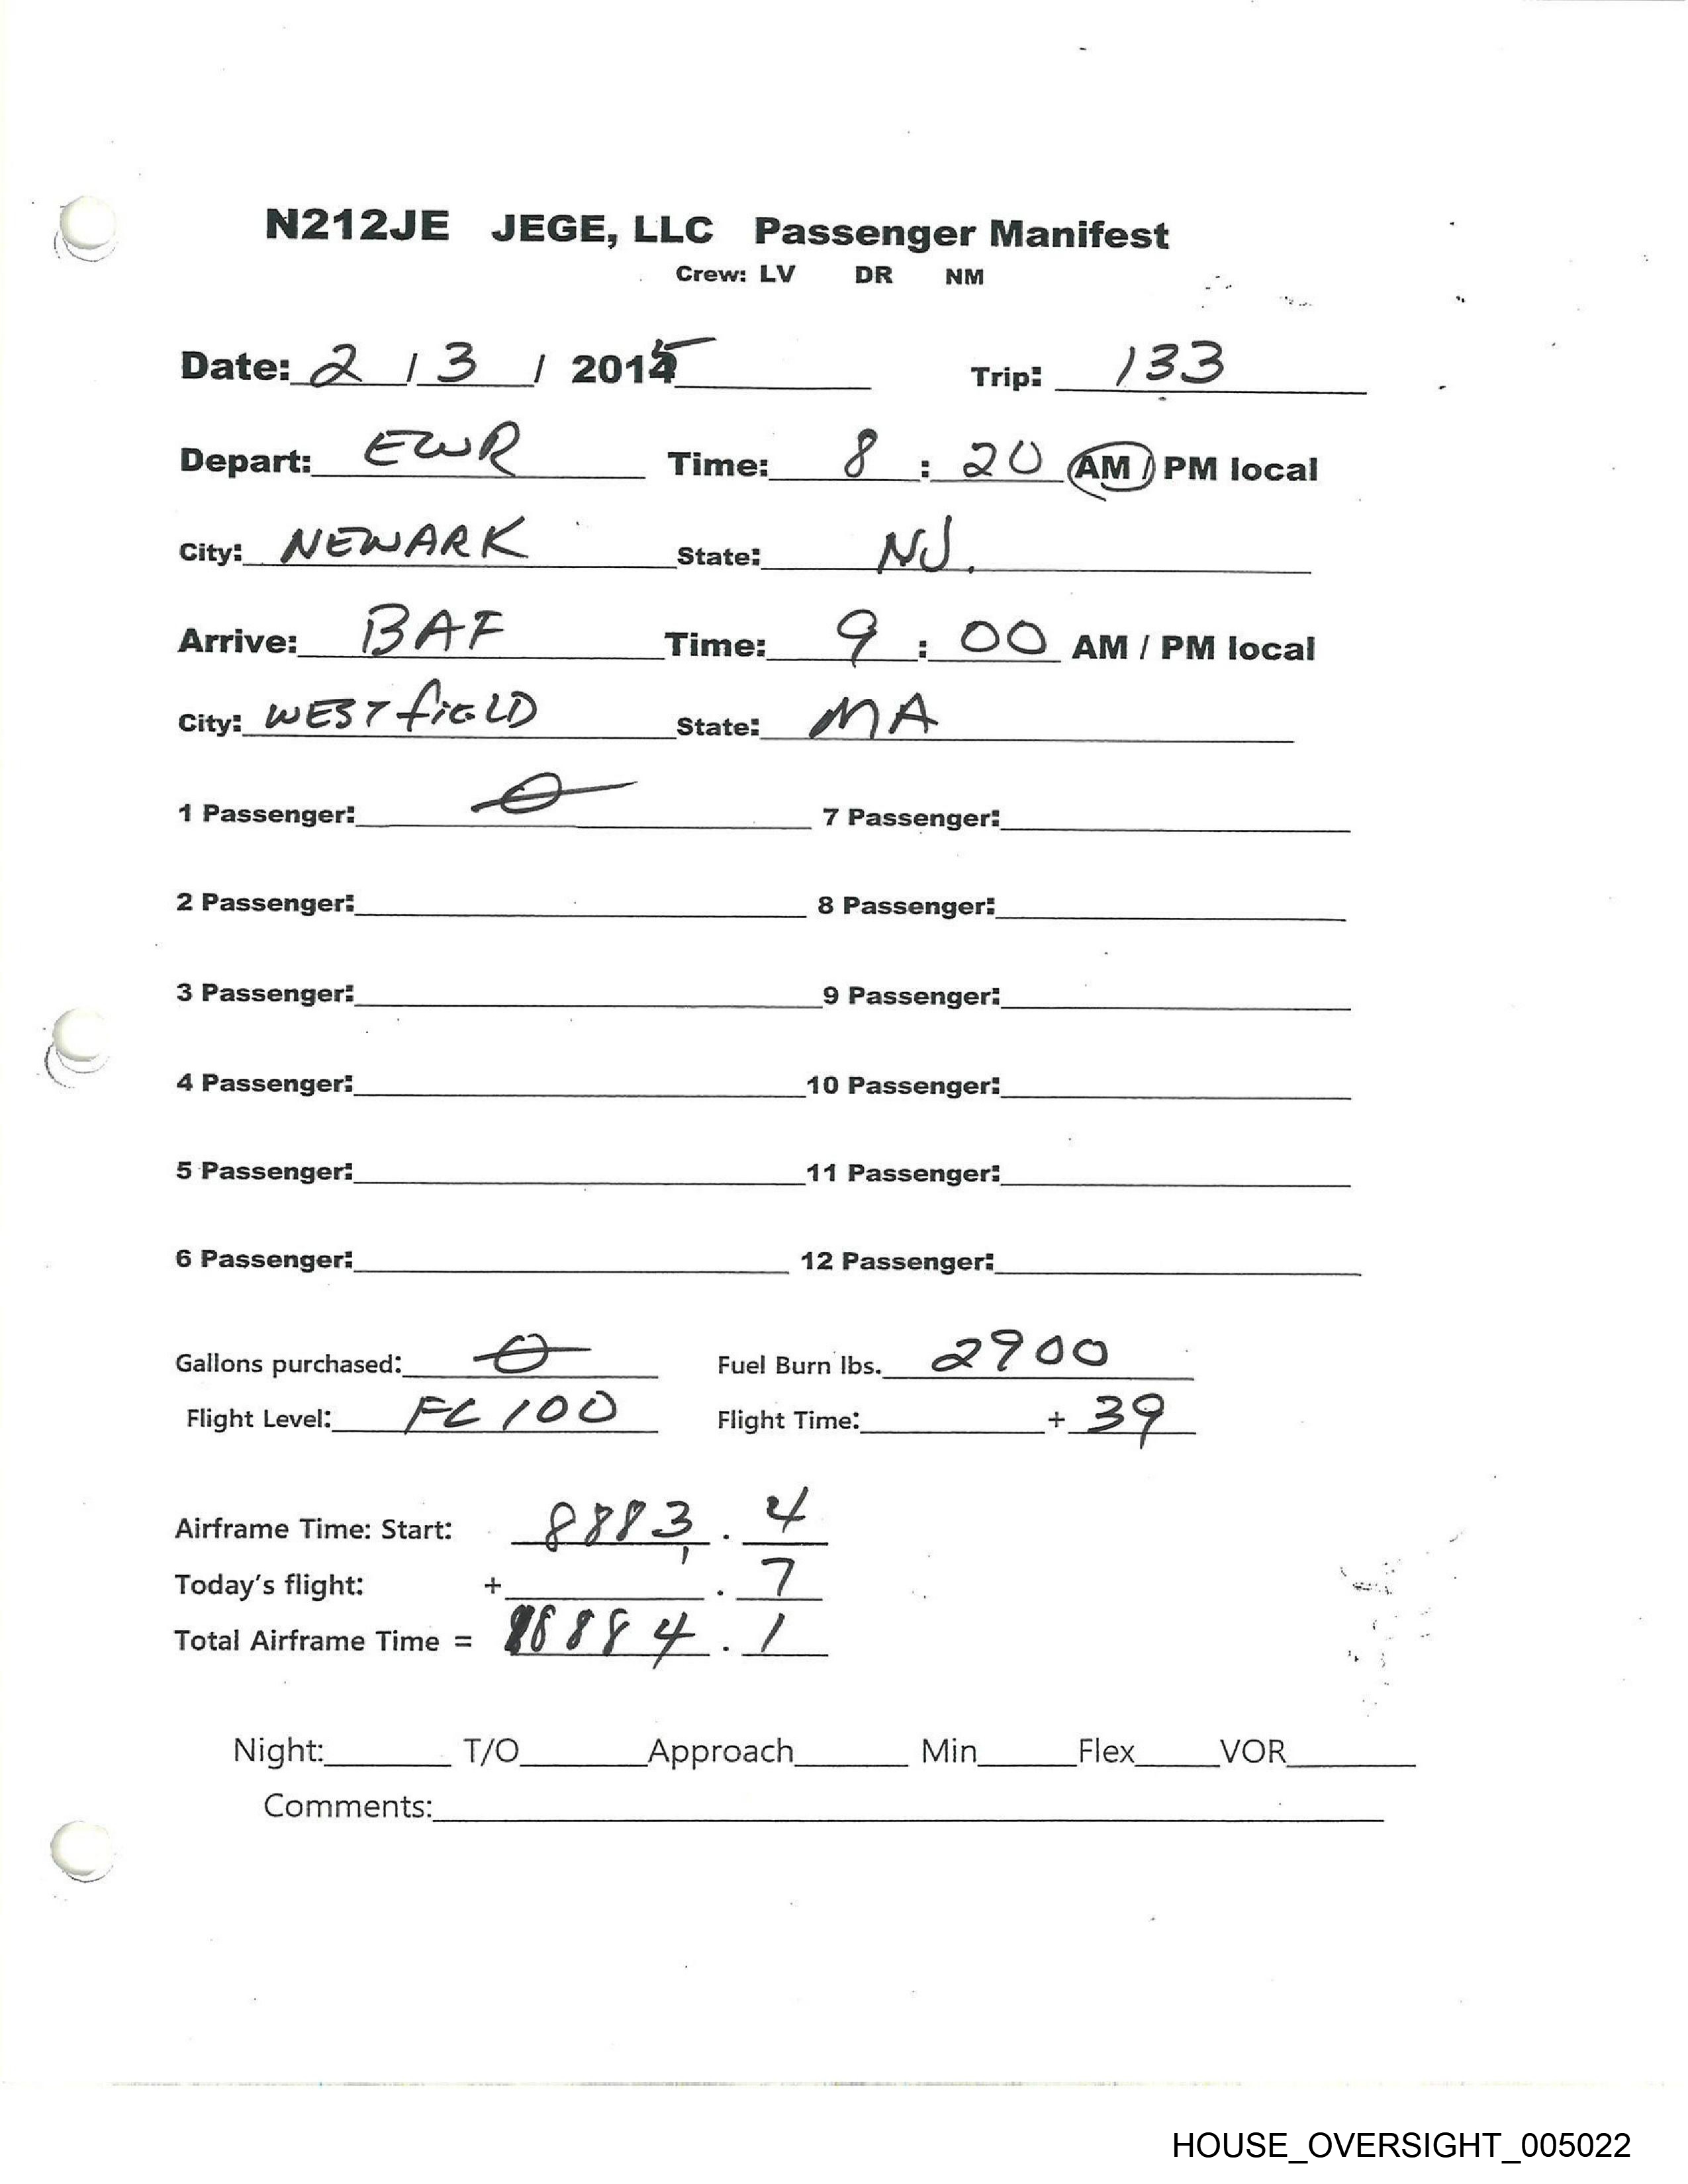 N212JE JEGE, LLC Passenger Manifest
Crew: LV DR NM
Date: 2 / 3 / 2015 Trip: 133
Depart: EWR Time: 8 : 20 AM / PM local
City: NEWARK State: NJ.
Arrive: BAF Time: 9 : 00 AM / PM local
City: WESTfiELD State: MA
1 Passenger: 0 7 Passenger:
2 Passenger: 8 Passenger:
3 Passenger: 9 Passenger:
4 Passenger: 10 Passenger:
5 Passenger: 11 Passenger:
6 Passenger: 12 Passenger:
Gallons purchased: 0 Fuel Burn lbs. 2900
Flight Level: FL 100 Flight Time: + 39
Airframe Time: Start: 8883 . 4
Today's flight: + . 7
Total Airframe Time = 8884 . 1
Night: T/O Approach Min Flex VOR
Comments:
HOUSE_OVERSIGHT_005022